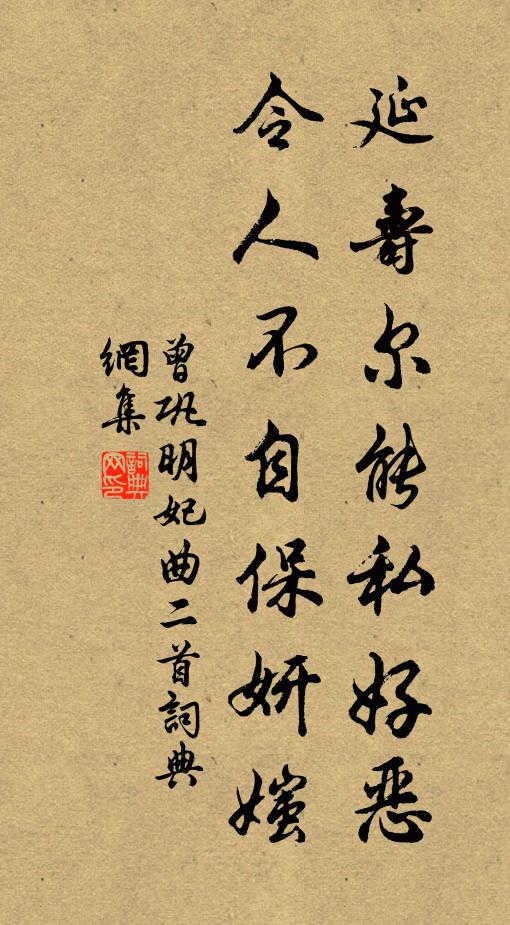 延壽尔能私好恶
令人不自保妍媸
曾巩明妃曲二首詞典
網集
詞典网印